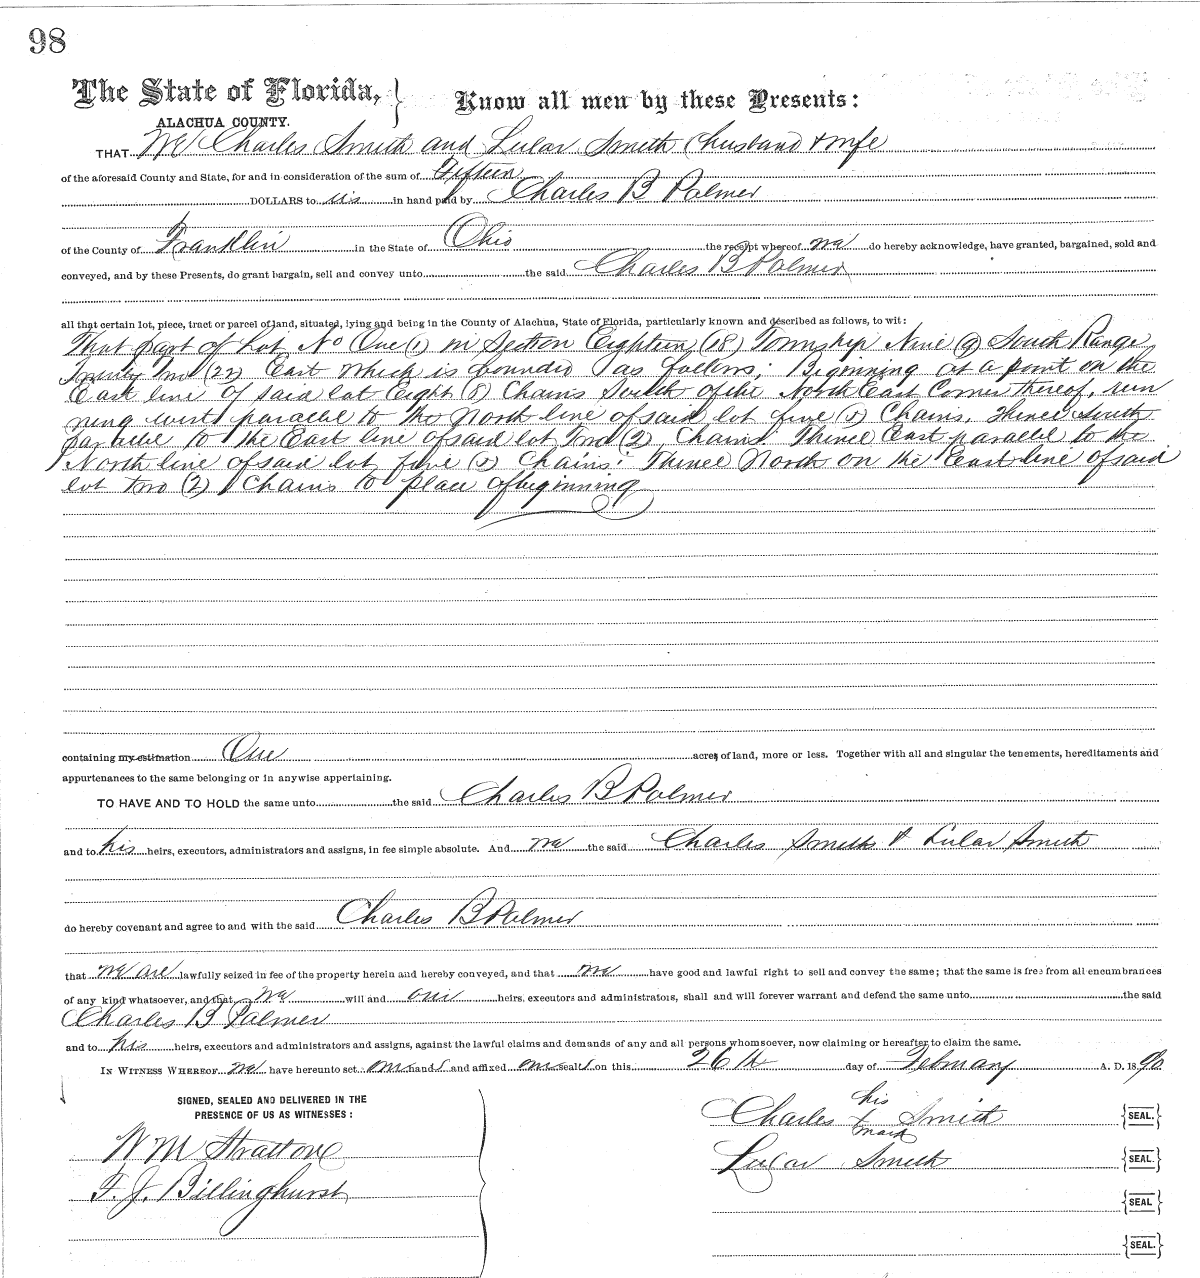 98
The State of Florida, }
ALACHUA COUNTY.
Know all men by these Presents:
THAT We Charles Smith and Lular Smith (husband & wife
of the aforesaid County and State, for and in consideration of the sum of Fifteen
DOLLARS to us in hand paid by Charles B Palmer
of the County of Franklin in the State of Ohio the receipt whereof we do hereby acknowledge, have granted, bargained, sold and
conveyed, and by these Presents, do grant bargain, sell and convey unto the said Charles B Palmer
all that certain lot, piece, tract or parcel of land, situated, lying and being in the County of Alachua, State of Florida, particularly known and described as follows, to wit:
That part of Lot No One (1) in Section Eighteen (18) Township Nine (9) South Range
Twenty Two (22) East which is bounded as follows; Biginning at a point on the
East line of said lot Eight (8) Chains South of the North East Corner thereof, run
ning west parallel to the North line of said lot five (5) Chains, Thence South
parallel to the East line of said lot Two (2) Chains Thence East parallel to the
North line of said lot five (5) Chains: Thence North on the East line of said
lot two (2) Chains to place of beginning
containing my estimation One acres of land, more or less. Together with all and singular the tenements, hereditaments and
appurtenances to the same belonging or in anywise appertaining.
TO HAVE AND TO HOLD the same unto the said Charles B Palmer
and to his heirs, executors, administrators and assigns, in fee simple absolute. And we the said Charles Smith & Lular Smith
do hereby covenant and agree to and with the said Charles B Palmer
that we are lawfully seized in fee of the property herein and hereby conveyed, and that we have good and lawful right to sell and convey the same; that the same is free from all encumbrances
of any kind whatsoever, and that we will and our heirs, executors and administrators, shall and will forever warrant and defend the same unto the said
Charles B Palmer
and to his heirs, executors and administrators and assigns, against the lawful claims and demands of any and all persons whomsoever, now claiming or hereafter to claim the same.
IN WITNESS WHEREOF we have hereunto set our hands and affixed our seals on this 26th day of February A. D. 1890
SIGNED, SEALED AND DELIVERED IN THE
PRESENCE OF US AS WITNESSES:
W M Strattone
F. J. Billinghurst
his
Charles x Smith {SEAL.}
mark
Lular Smith {SEAL}
{SEAL}
{SEAL.}